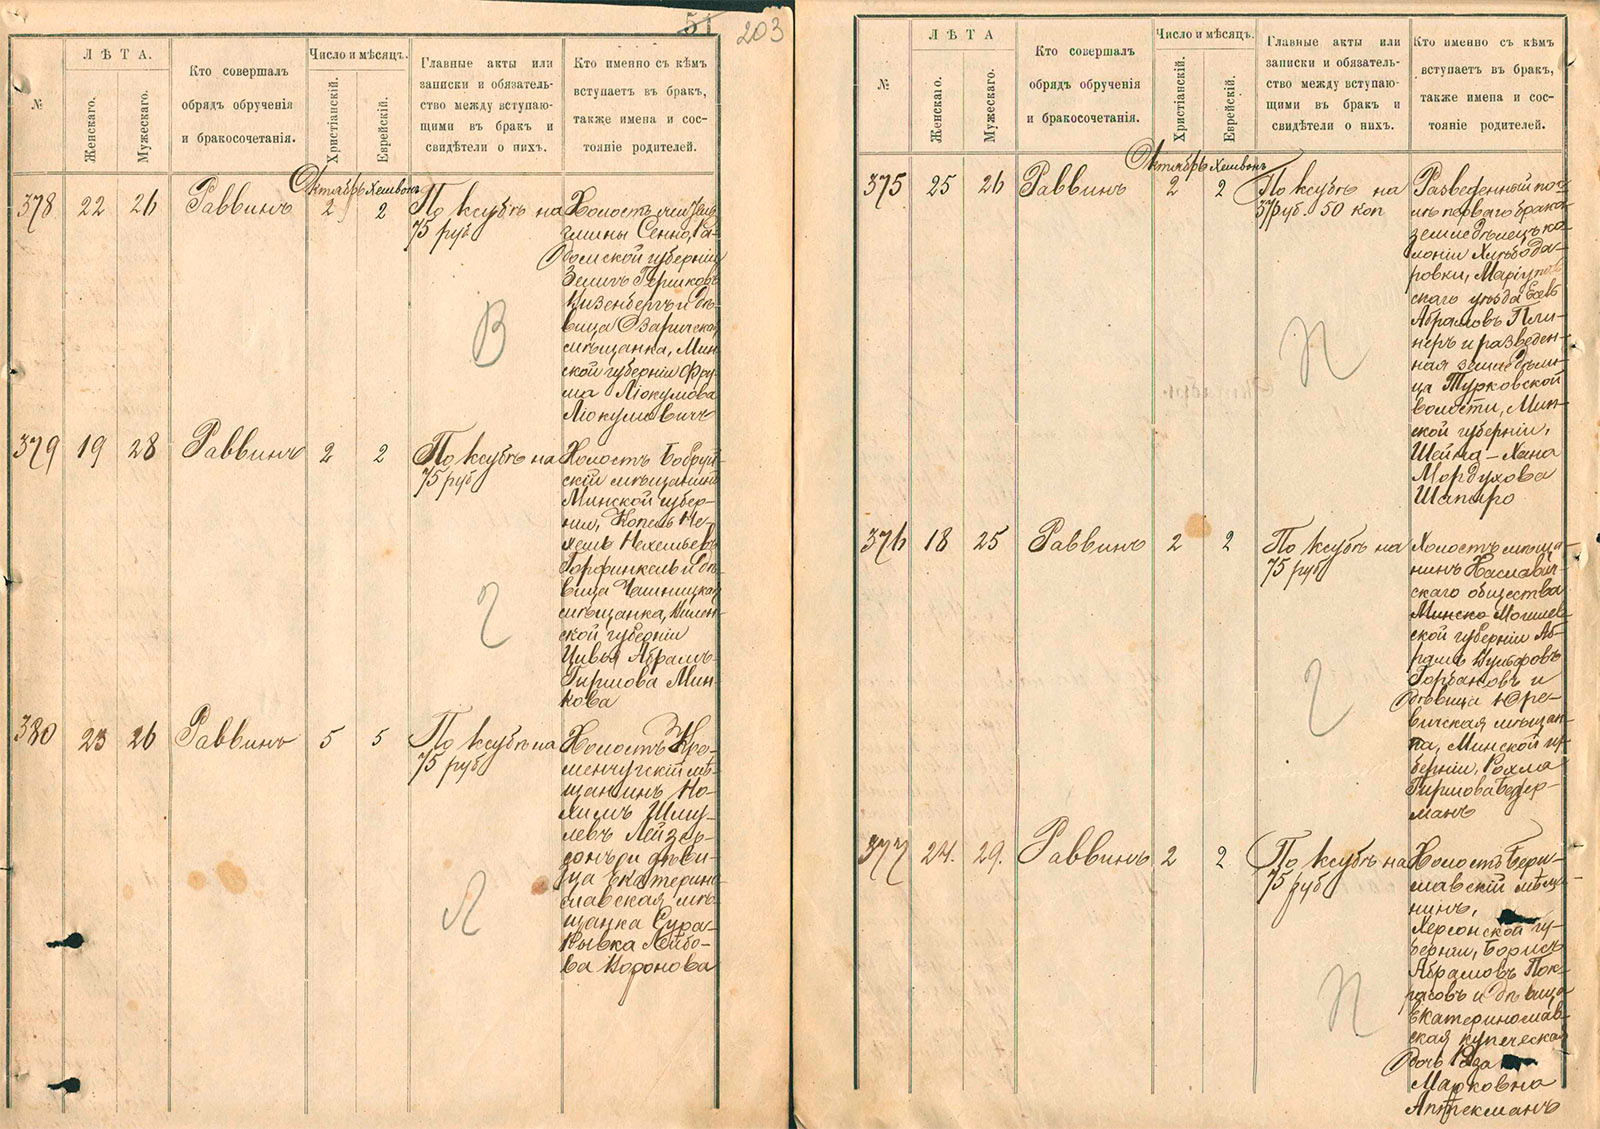 51
203
ЛѢТА.
Число и мѣсяцъ.
№
Женскаго.
Мужескаго.
Кто совершалъ
обрядъ обрученія
и бракосочетанія.
Христіанскій.
Еврейскій.
Главные акты или
записки и обязатель-
ство между вступаю-
щими въ бракъ и
свидѣтели о нихъ.
Кто именно съ кѣмъ
вступаетъ въ бракъ,
также имена и сос-
тояніе родителей.
Октябрь Хешвонъ
378 22 26 Раввинъ 2 2
По ксубѣ на
75 руб
Холостъ
гмины Сенно, Ра-
домской губерніи
Гершковъ
Цизенбергъ и дѣ-
вица Озаричская
мѣщанка, Мин-
ской губерніи Фру-
ма Ліокумова
Ліокумовичъ
В
379 19 28 Раввинъ 2 2
По ксубѣ на
75 руб
Холостъ Бобруй-
скій мѣщанинъ
Минской губер-
ніи, Копель Не-
хемъ Нехемьевъ
Горфинкель и дѣ-
вица Чашницкая
мѣщанка,
ской губерніи
Цивья Абрамъ-
Гиршова Мин-
кова
Г
380 23 26 Раввинъ 5 5
По ксубѣ на
75 руб
Холостъ Кре-
менчугскій мѣ-
щанинъ Но-
химъ Шму-
левъ Лейзер-
сонъ и дѣви-
ца Екатерино-
славская мѣ-
щанка Сура-
Рывка Лейбо-
ва Воронова
Л
ЛѢТА
Число и мѣсяцъ.
№
Женскаго.
Мужескаго.
Кто совершалъ
обрядъ обрученія
и бракосочетанія.
Христіанскій.
Еврейскій.
Главные акты или
записки и обязатель-
ство между вступаю-
щими въ бракъ и
свидѣтели о нихъ.
Кто именно съ кѣмъ
вступаетъ въ бракъ,
также имена и сос-
тояніе родителей.
Октябрь Хешвонъ
375 25 26 Раввинъ 2 2
По ксубѣ на
37 руб. 50 коп
Разведенный пос-
лѣ перваго брака
земледѣлецъ ко-
лоніи Хлѣбода-
ровки, Маріуполь-
скаго уѣзда
Абрамовъ Пли-
неръ и разведен-
ная земледѣли-
ца Турковской
волости, Мин-
ской губерніи,
Шейна-Хана
Мордухова
Шапиро
П
376 18 25 Раввинъ 2 2
По ксубѣ на
75 руб
Холостъ мѣща-
нинъ Хаславич-
скаго общества
Минско Могилев-
ской губерніи Аб-
рамъ Вульфовъ
Горбановъ и
дѣвица Юре-
вичская мѣщан-
ка, Минской гу-
берніи, Рохля
Гиршова Бедер-
манъ
Г
377 24. 29. Раввинъ 2 2
По ксубѣ на
75 руб
Холостъ Бери-
славскій мѣща-
нинъ,
Херсонской гу-
берніи, Борисъ
Абрамовъ Пок-
расовъ и дѣвица
Екатеринослав-
ская купеческая
дочь Роза
Марковна
Аптекманъ
П